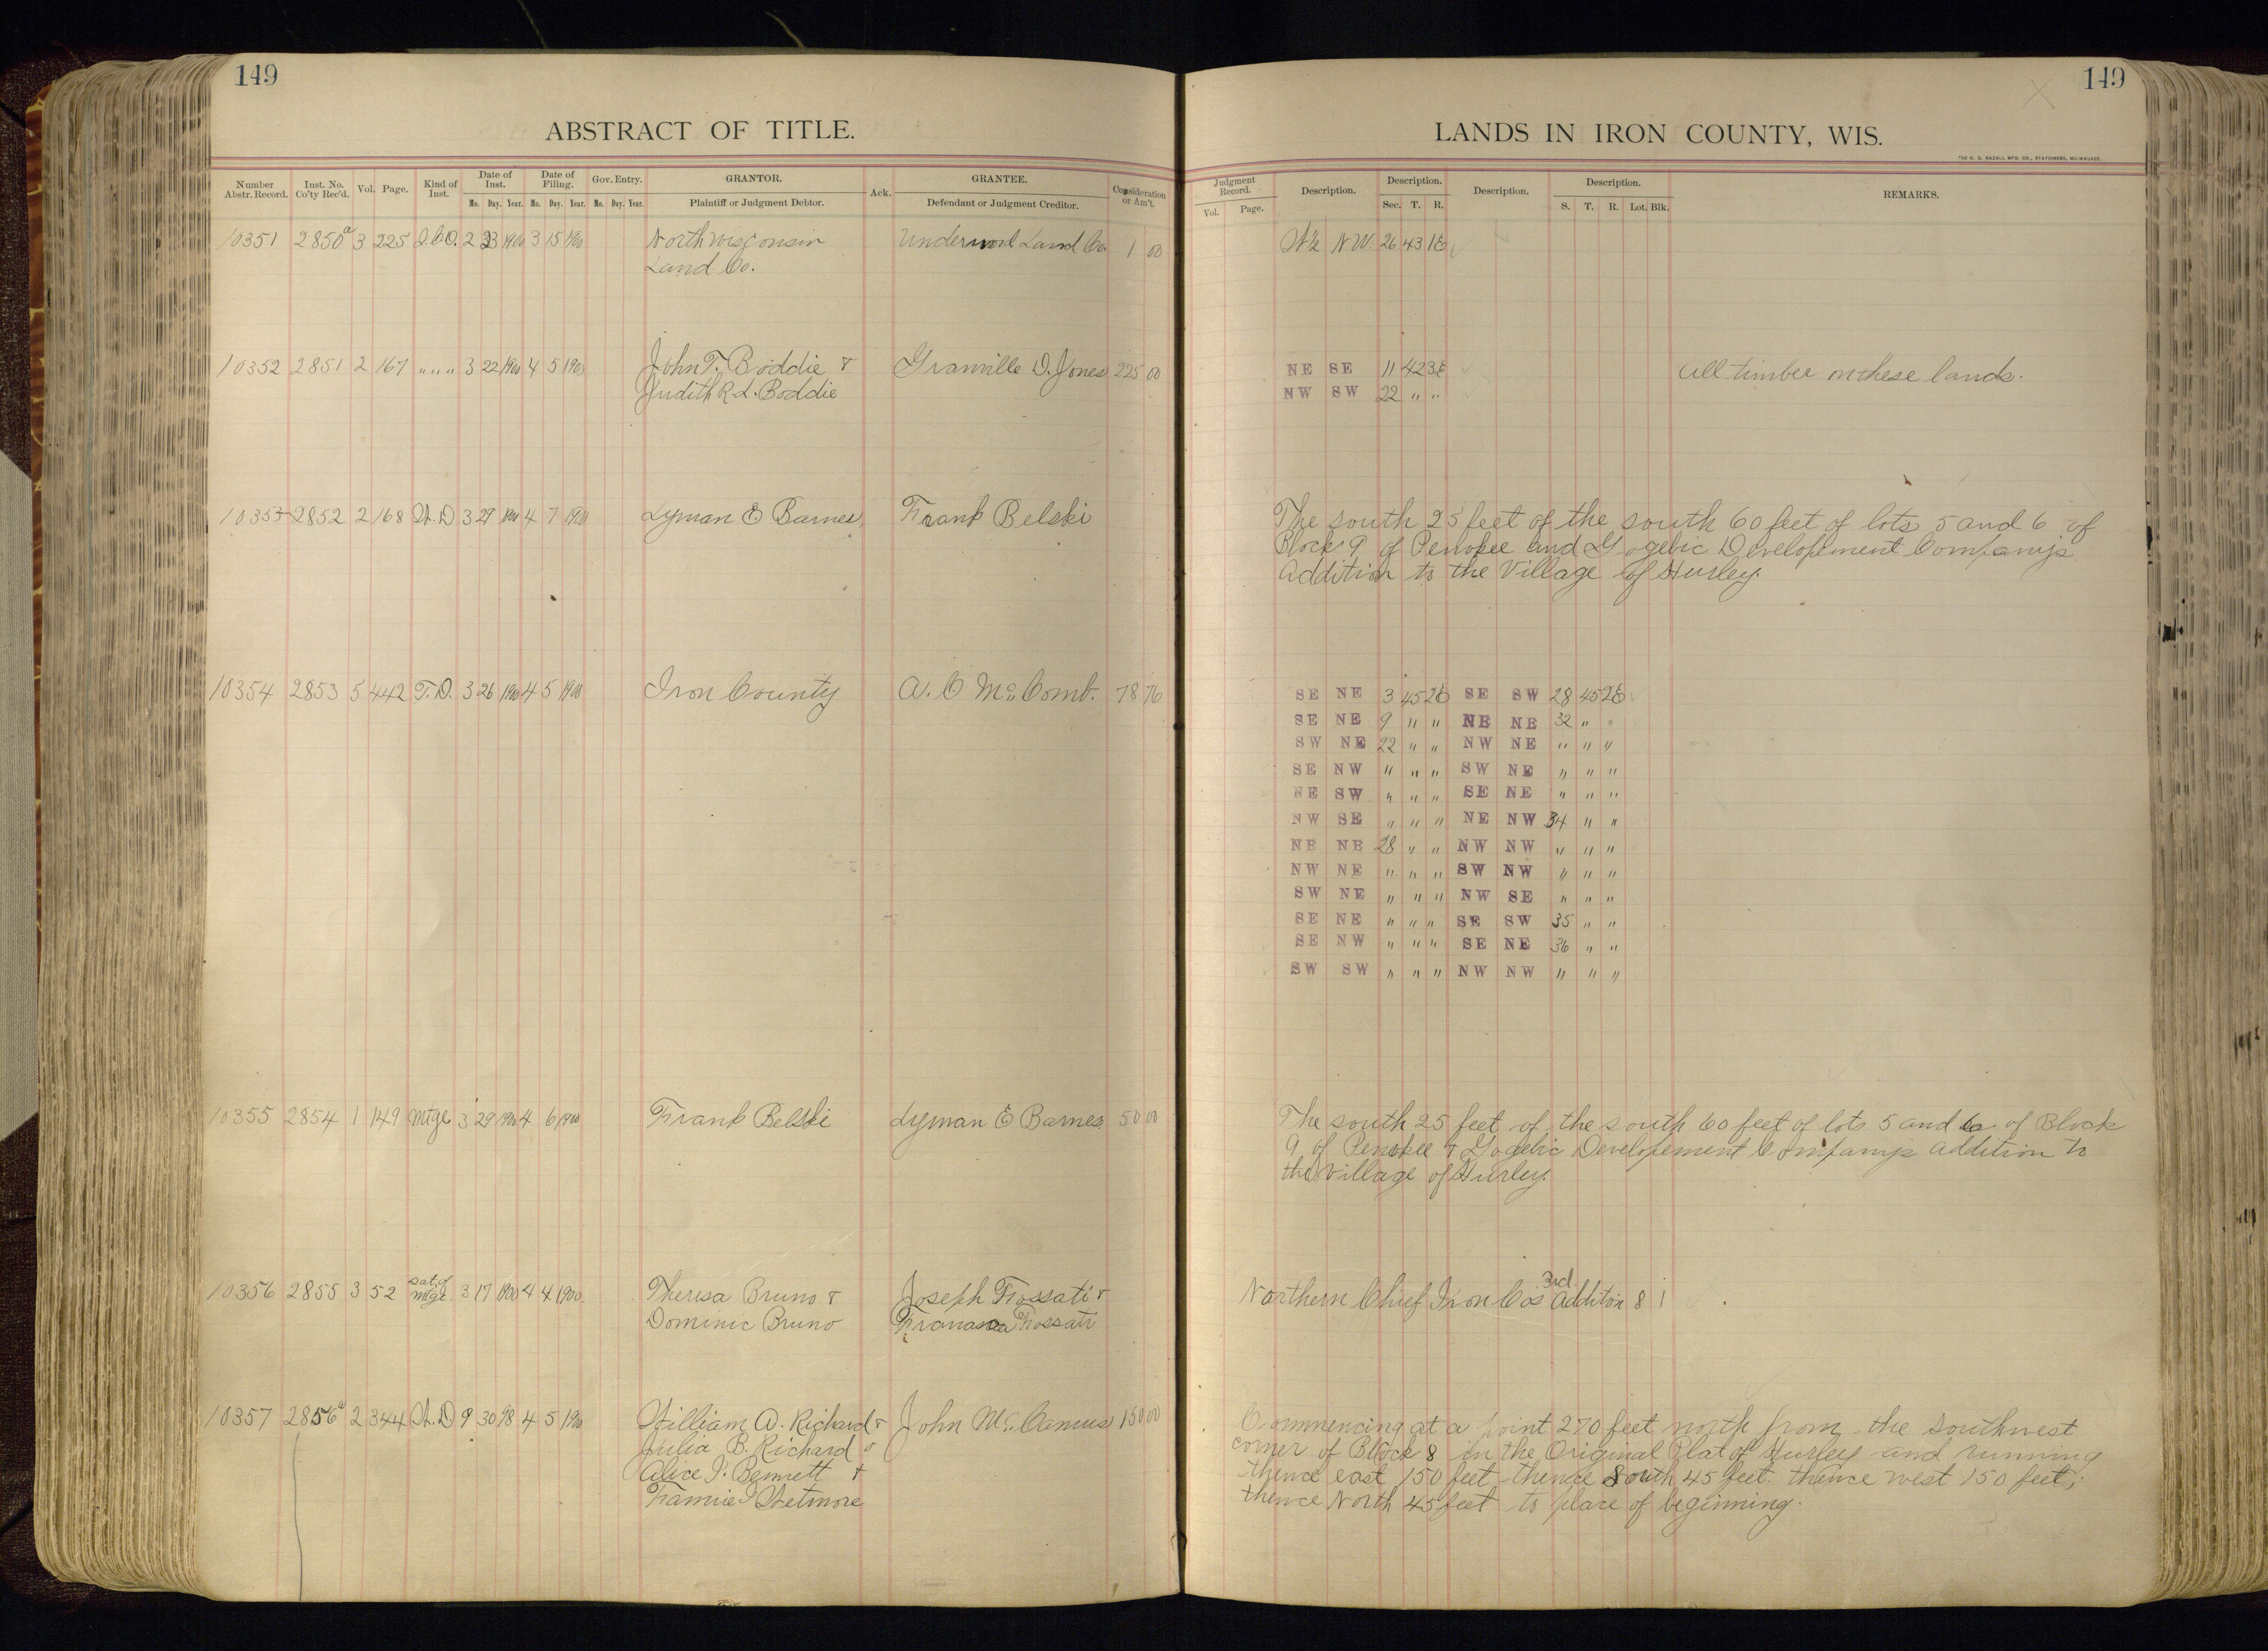 149
149
ABSTRACT OF TITLE.
LANDS IN IRON COUNTY, WIS.
THE H. G. RAZALL MFG. CO., STATIONERS, MILWAUKEE.
Number Abstr. Record. Inst. No. Co'ty Rec'd. Vol. Page. Kind of Inst. Date of Inst. Date of Filing. Gov. Entry. GRANTOR. Ack. GRANTEE. Consideration or Am't.
Mo. Day. Year. Mo. Day. Year. Mo. Day. Year. Plaintiff or Judgment Debtor. Defendant or Judgment Creditor.
Judgment Record. Description. Description. Description. Description. REMARKS.
Vol. Page. Sec. T. R. S. T. R. Lot. Blk.
10351 2850a 3 225 2 23 1900 3 15 1900 North Wisconsin Underwood Land Co. 1 00 N½ NW 26 43 1E
Land Co.
10352 2851 2 167 " " " 3 22 1900 4 5 1900 John T. Boddie & Granville D. Jones 225 00 NE SE 11 42 3E All timber on these lands.
Judith R. L. Boddie NW SW 22 " "
10353 2852 2 168 W. D 3 29 1900 4 7 1900 Lyman E Barnes Frank Belski The south 25 feet of the south 60 feet of lots 5 and 6 of
Block 9 of Penokee and Gogebic Developement Company's
Addition to the Village of Hurley.
10354 2853 5 442 T. D. 3 26 1900 4 5 1900 Iron County A. C McComb. 78 76 SE NE 3 45 2E SE SW 28 45 2E
SE NE 9 " " NE NE 32 " "
SW NE 22 " " NW NE " " "
SE NW " " " SW NE " " "
NE SW " " " SE NE " " "
NW SE " " " NE NW 34 " "
NE NE 28 " " NW NW " " "
NW NE " " " SW NW " " "
SW NE " " " NW SE " " "
SE NE " " " SE SW 35 " "
SE NW " " " SE NE 36 " "
SW SW " " " NW NW " " "
10355 2854 1 149 Mtge 3 29 1900 4 6 1900 Frank Belski Lyman E Barnes 50 00 The south 25 feet of the south 60 feet of lots 5 and 6 of Block
9 of Penokee & Gogebic Developement Company's Addition to
the Village of Hurley.
10356 2855 3 52 Sat. of Mtge 3 17 1900 4 4 1900 Theresa Bruno & Joseph Fossati & Northern Chief Iron Co's 3rd Addition 8 1
Dominic Bruno Fossati
10357 2856a 2 344 W. D 9 30 98 4 5 1900 William A. Richard & John McCamus 150 00 Commencing at a point 270 feet north from the southwest
Julia B. Richard & corner of Block 8 in the Original Plat of Hurley and running
Alice I. Bennett & thence east 150 feet thence South 45 feet. thence west 150 feet;
Fannie I Wetmore thence North 45 feet to place of beginning.